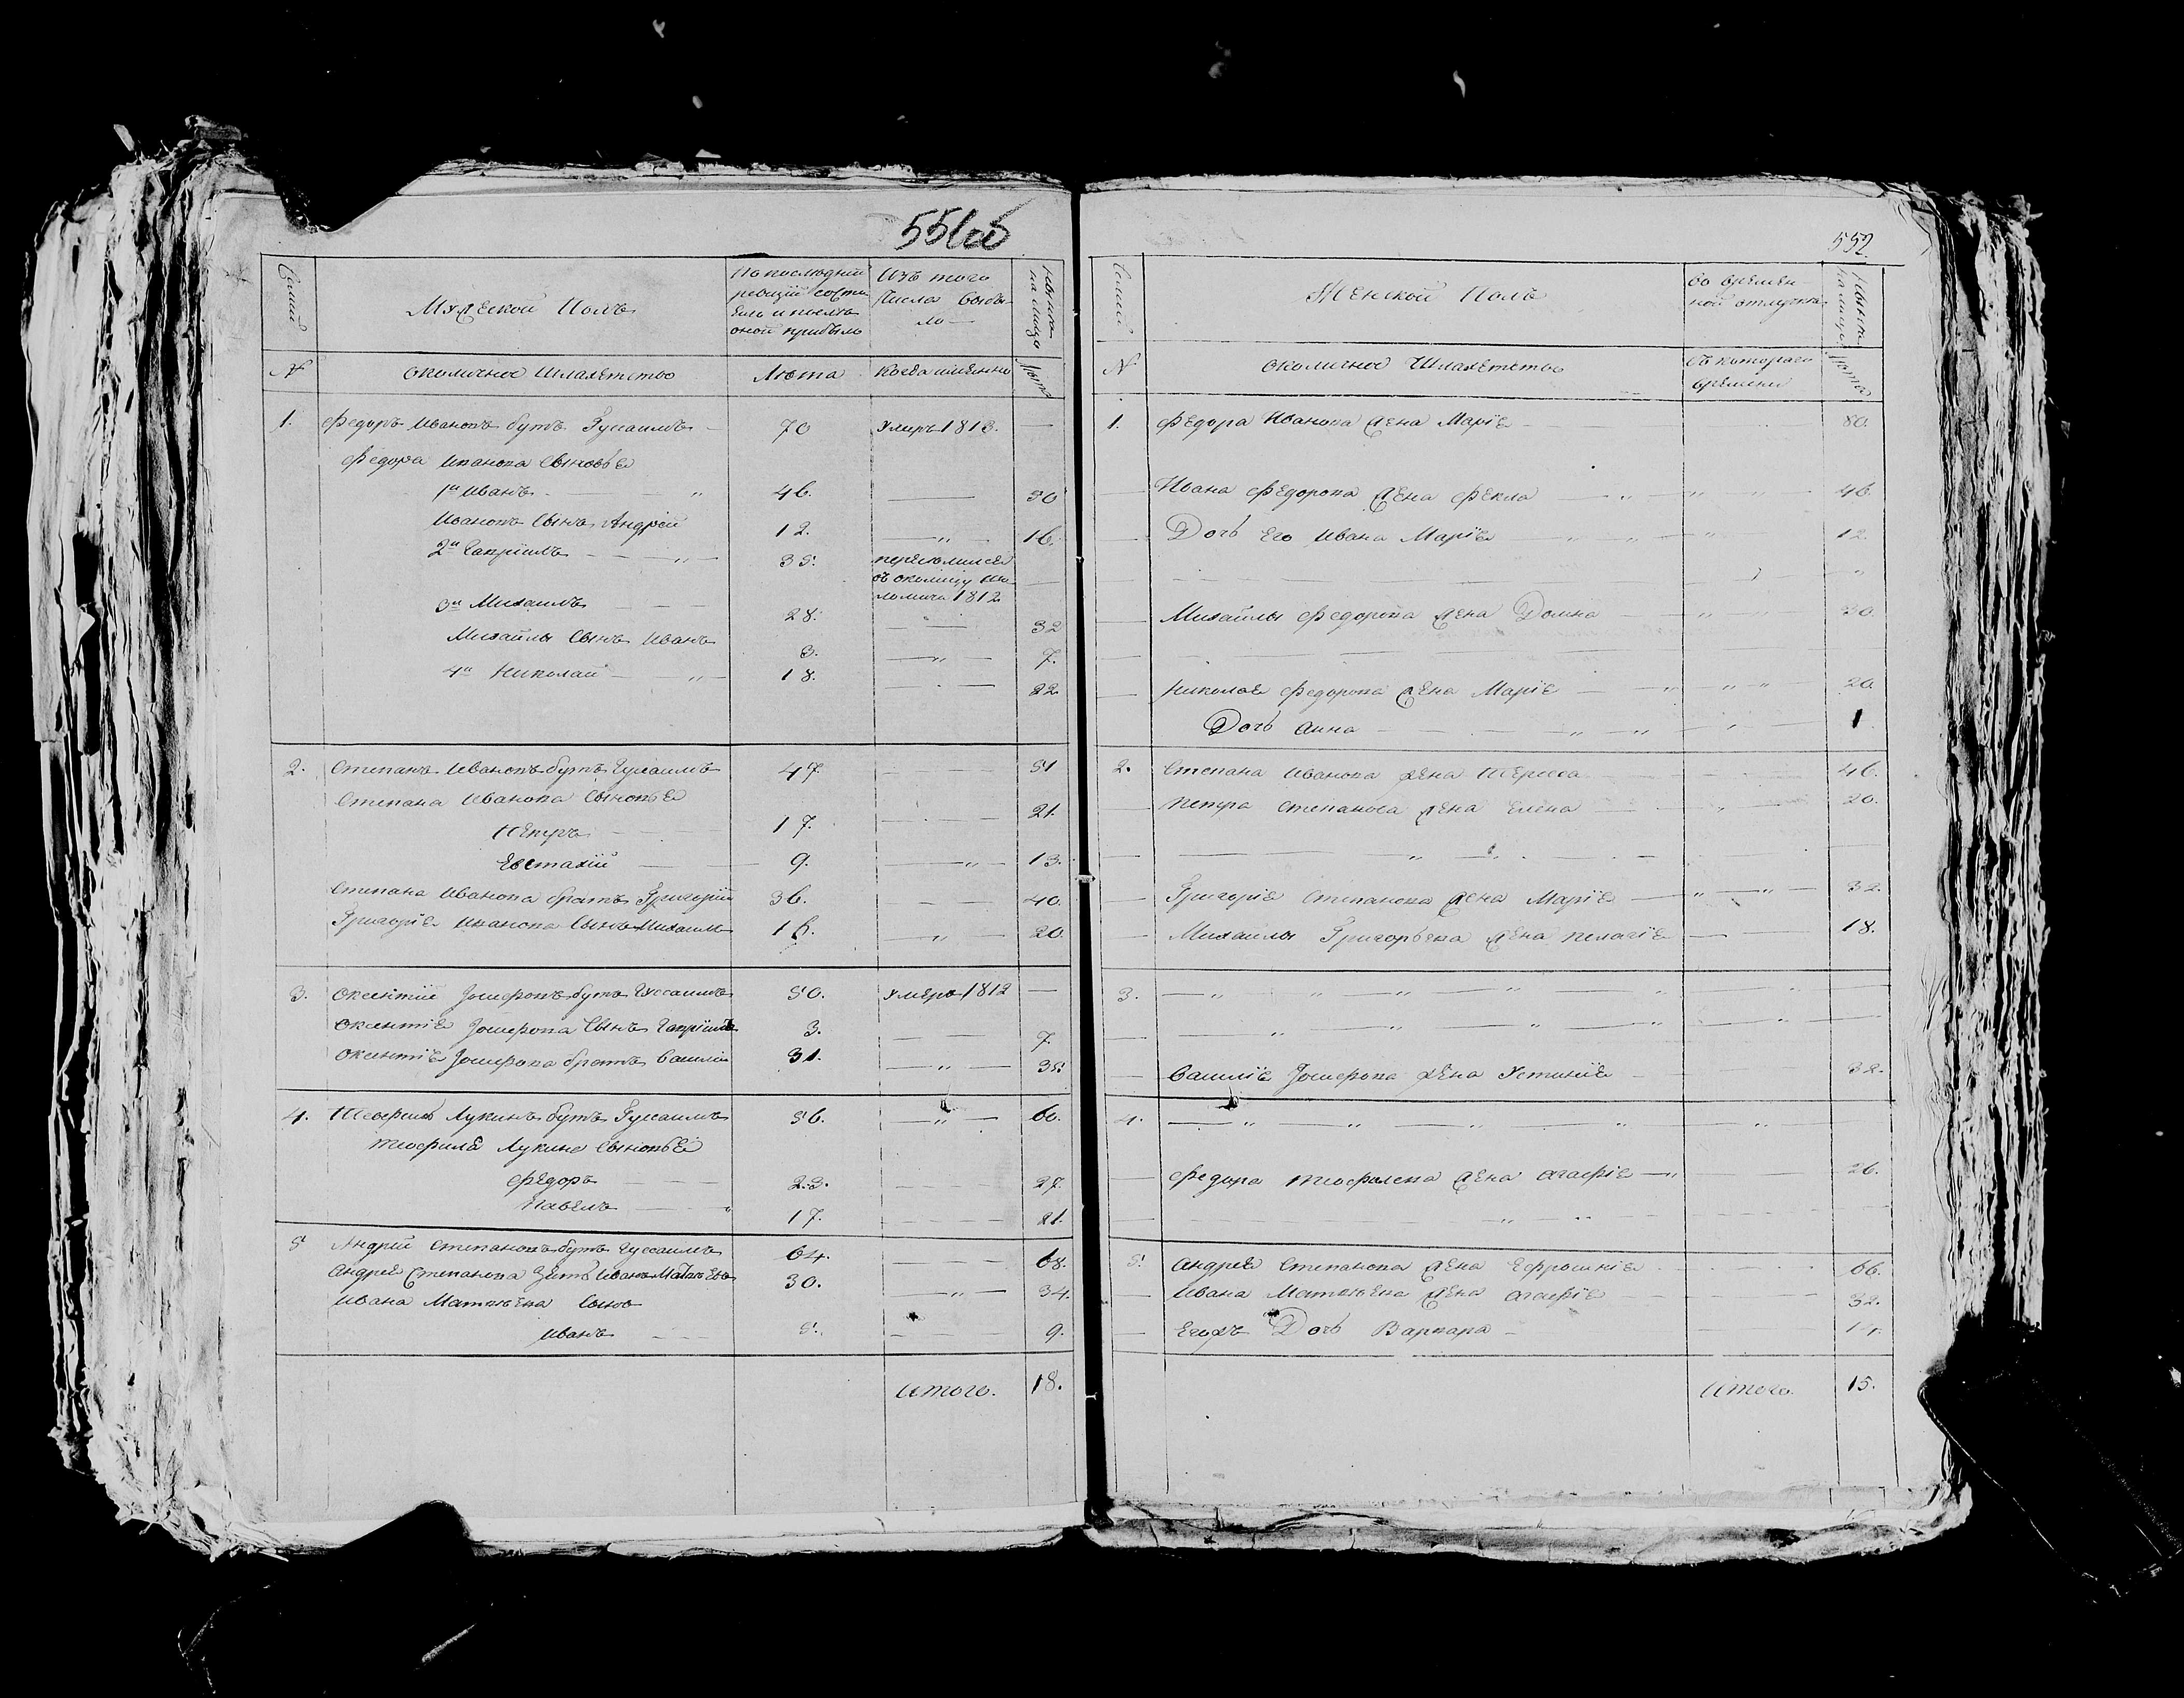 551об
Семьи
Мужеской Полъ
По последней
ревизіи состо
яло и после
оной прибыло
Изъ того
Числа выбы-
ло
Ныне
на лицо
№
околичное Шляхетство
Лета
Когда именно
Лета
1. Федоръ Ивановъ бутъ Гуссаимъ 70 Умеръ 1813. —
Федора Иванова Сыновья
1й Иванъ 46. 50
Ивановъ Сынъ Андрей 12. 16.
2й Гаврiилъ 35. переселился
въ околицу
1812
3й Михаилъ 28. 32
Михайлы Сынъ Иванъ 3. 7.
4й Николай 18. 22
2. Степанъ Ивановъ бутъ Гуссаимъ 47 51
Степана Иванова Сыновья
Петръ 17. 21.
Евстахий 9. 13.
Степана Иванова братъ Григорий 36. 40.
Григорiя Иванова Сынъ Михаилъ 16. 20.
3. Оксентiй Iосифовъ бутъ Гуссаимъ 50. Умеръ 1812 —
Оксентiя Iосифова Сынъ Гаврiилъ 3. 7.
Оксентiя Iосифова братъ Василiй 31. 35.
4. Теофилъ Лукинъ бутъ Гуссаимъ 56. 60.
Теофила Лукина Сыновья
Федоръ 23. 27.
Павелъ 17. 21.
5 Андрей Степановъ бутъ Гуссаимъ 64. 68.
Андрея Степанова Зять Иванъ Матвеевъ 30. 34.
Ивана Матвеева Сынъ
Иванъ 5. 9.
Итого. 18.
552
Семьи
Женской Полъ
Во времен-
ной отлучке
Ныне
на лицо
№
околичное Шляхетство
Съ котораго
времени
Лета
1. Федора Иванова Жена Марiя 80.
Ивана Федорова Жена Фекла 46.
Дочь Его Ивана Марiя 12
Михайлы Федорова Жена Домна 30.
Николая Федорова Жена Марiя 20
Дочь Анна 1
2. Степана Иванова Жена Тересса 46.
Петра Степанова Жена Елена 20.
Григорiя Степанова Жена Марiя 32.
Михайлы Григорьева Жена Пелагiя 18.
3.
Василiя Iосифова Жена Устинiя 32.
4.
Федора Теофилева Жена Агафiя 26.
5. Андрея Степанова Жена Ефросинiя 66.
Ивана Матвеева Жена Агафiя 32.
Егожъ Дочь Варвара
Итого. 15.